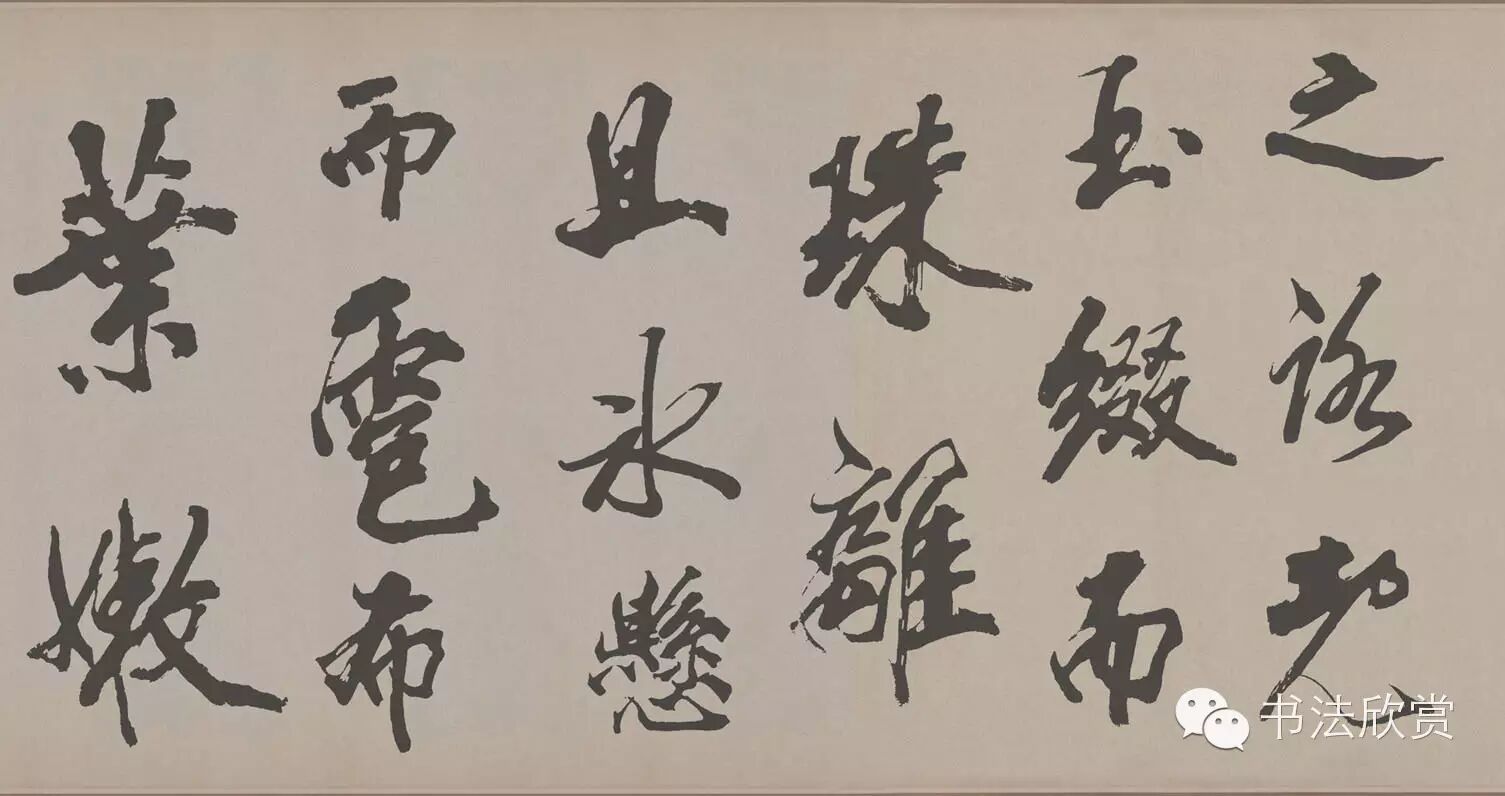 之路既
玉綴而
珠離
且冰懸
而雹布
葉嫩
书法欣赏